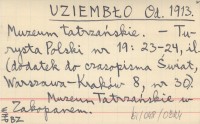 UZIEMBŁO Od. 1913.
Muzeum tatrzańskie. – Tu-
rysta Polski nr 19: 23-24, il.
(dodatek do czasopisma Świat,
Warszawa-Kraków 8, nr 30).
Muzeum Tatrzańskie w
Zakopanem.
BZ